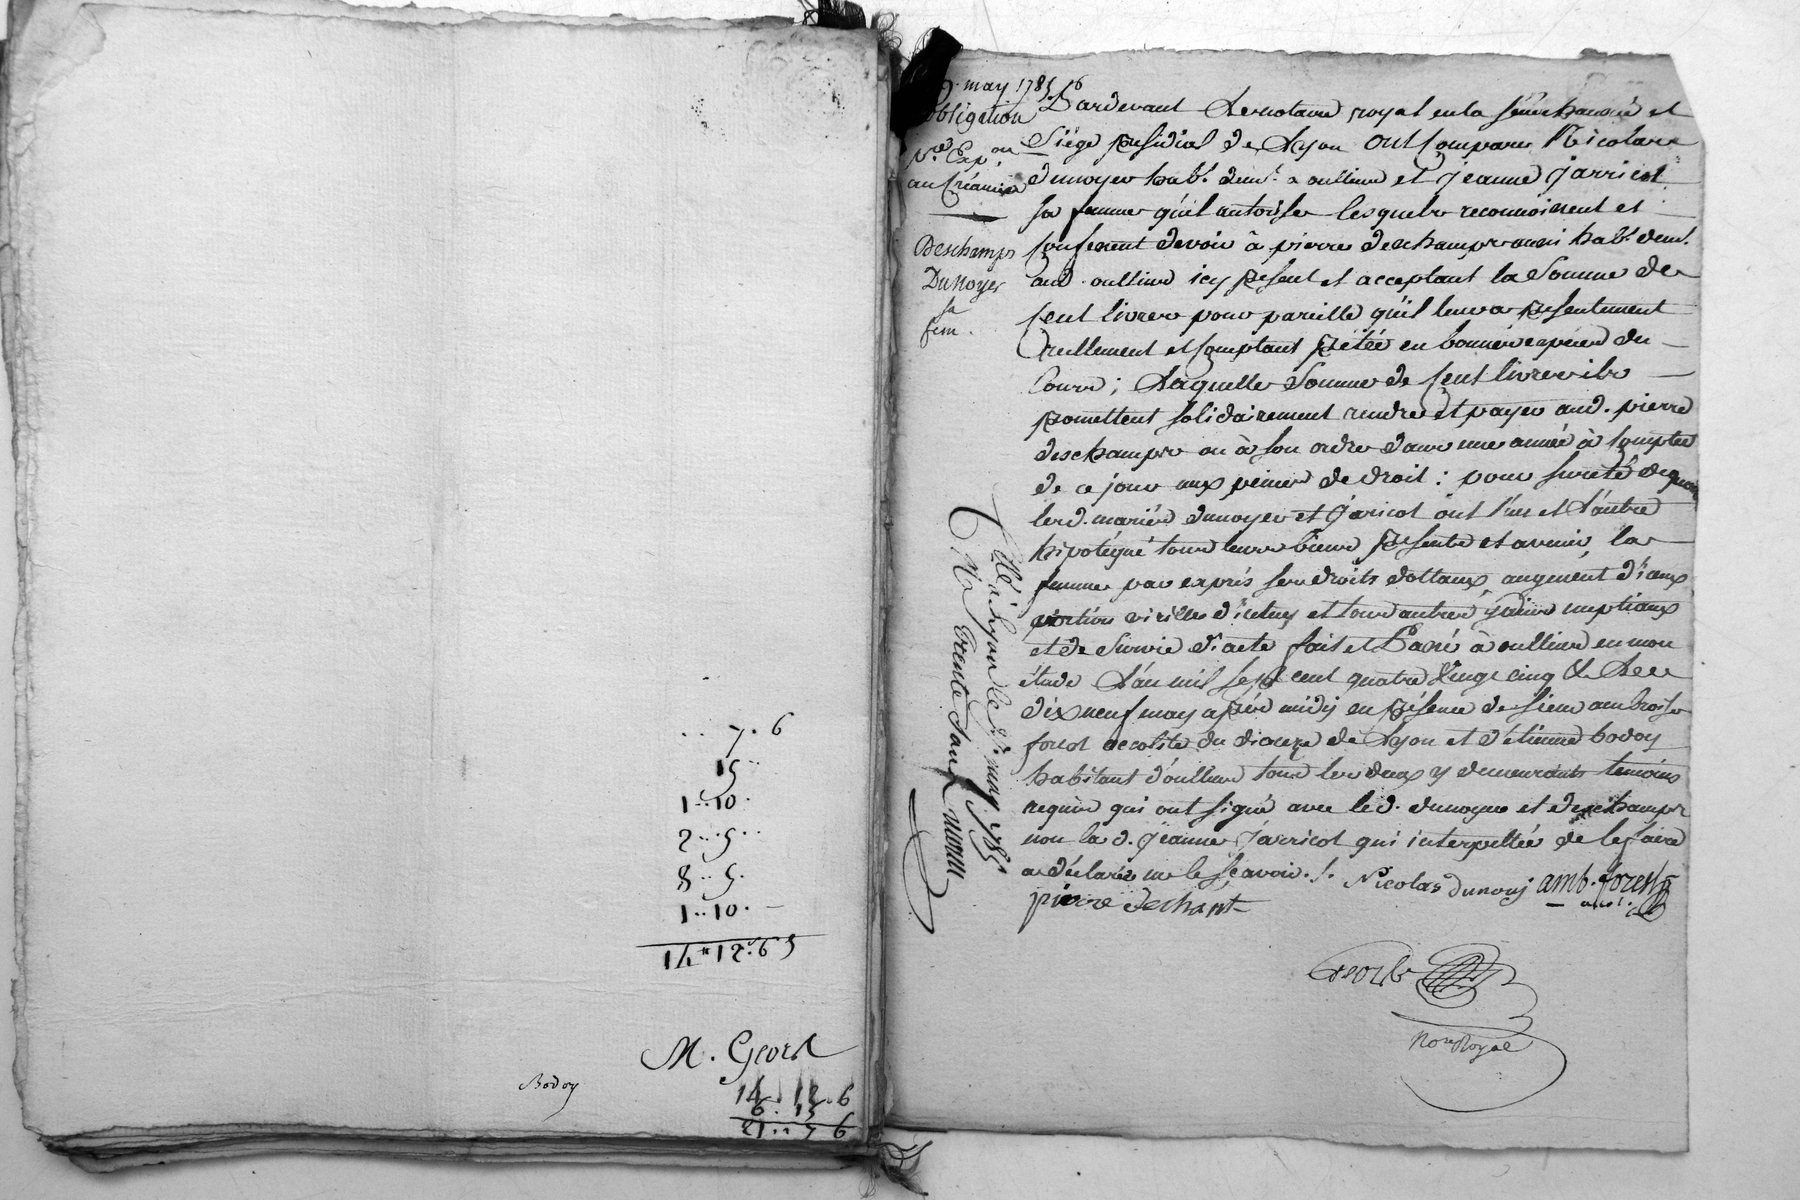 7. 6
15
1..10.
2..5..
8..5.
1..10.
14 12. 6
M. Geord
Bodoy
14. 12. 6
6. 15
21.. 7 6
9. may 1785
obligation
1re Exp.on
au Créancier
Deschamps
Dunoyer
sa
fem.
Pardevant Le notaire royal en la sénéchaussée et
Siège présidial de Lyon ont comparu Nicolas
dunoyer habt. demt. a oullins et jeanne jarricot
sa femme qu'il autorise lesquels reconnoissent et
confessent devoir à pierre deschamps aussi habt. demt.
aud. oullins icy présent et acceptant la Somme de
cent livres pour pareille qu'il leur a présentement
réellement et comptant prêtée en bonnes espèces du
Cours ; Laquelle Somme de cent livres ils
promettent solidairement rendre et payer aud. pierre
deschamps ou à son ordre dans une année à compter
de ce jour aux peines de droit : pour sureté de quoi
les d. mariés dunoyer et jaricot ont l'un et l'autre
hipotéqué tous leurs biens présents et avenir, la
femme par exprès ses droits dottaux, augment d'iceux
portion virille d'iceluy et tous autres gains nuptiaux
et de Survie d. acte fait et Passé à oullins en mon
étude L'an mil sept cent quatre Vingt cinq & Le
dix neuf may après midy en présence de sieur ambroise
forest accolite du diocèze de Lyon et d'étienne bodoy
habitant d'oullins tous les deux y demeurants temoins
requis qui ont signé avec led. dunoyer et deschamps
non la d. jeanne jarricot qui interpellée de le faire
a déclaré ne le sçavoir ./. Nicolas dunouj amb. forest
pierre dechant acol.
Geord
Nore Royal
Cllé à Lyon le may 1785
R. trente sous